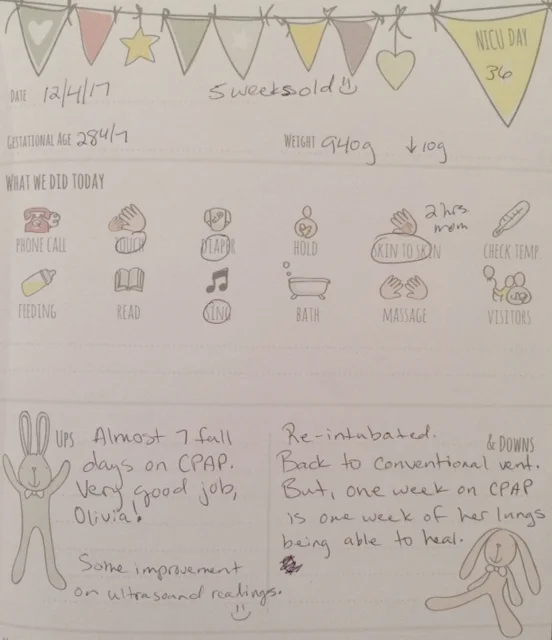 NICU DAY
36
DATE 12/4/17 5 weeks old
GESTATIONAL AGE 28 4/7 WEIGHT 940g ↓10g
WHAT WE DID TODAY
2 hrs
mom
PHONE CALL TOUCH DIAPER HOLD SKIN TO SKIN CHECK TEMP
FEEDING READ SING BATH MASSAGE VISITORS
UPS Almost 7 full
days on CPAP.
Very good job,
Olivia!
Some improvement
on ultrasound readings.
& DOWNS
Re-intubated.
Back to conventional vent.
But, one week on CPAP
is one week of her lungs
being able to heal.